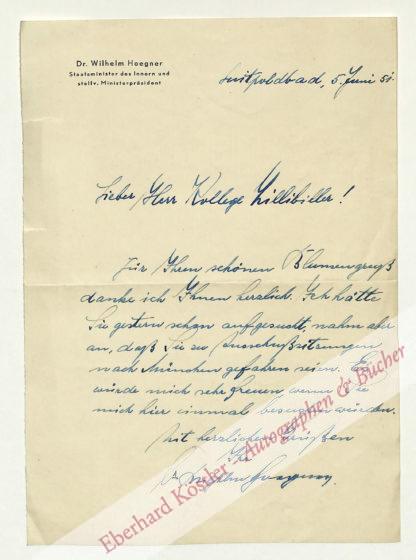 Dr. Wilhelm Hoegner
Staatsminister des Innern und
stellv. Ministerpräsident
Luitpoldbad, 5. Juni 51.
Lieber Herr Kollege Zillibiller!
Für Ihren schönen Blumengruß
danke ich Ihnen herzlich. Ich hätte
Sie gestern schon aufgesucht, nahm aber
an, daß Sie zu Ausschußsitzungen
nach München gefahren seien. Es
würde mich sehr freuen, wenn Sie
mich hier einmal besuchen würden.
Mit herzlichen Grüßen
Ihr
Dr. Wilhelm Hoegner.
Eberhard Köstler - Autographen & Bücher